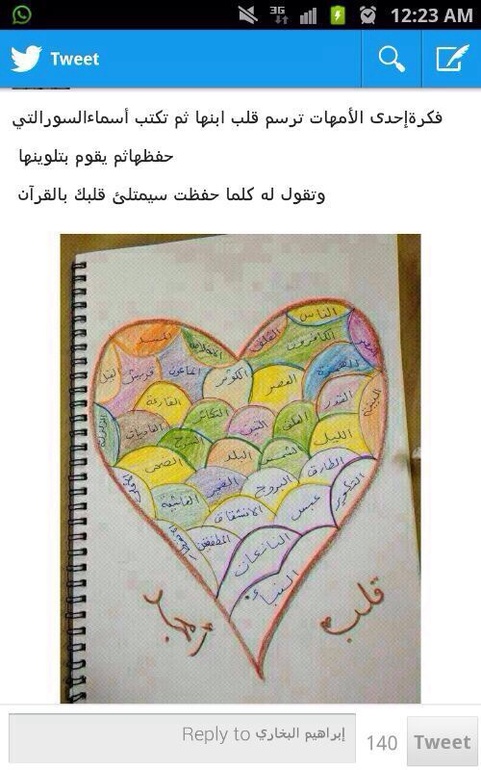 12:23 AM
3G
Tweet
فكرةإحدى الأمهات ترسم قلب ابنها ثم تكتب أسماءالسورالتي
حفظهاثم يقوم بتلوينها
وتقول له كلما حفظت سيمتلئ قلبك بالقرآن
الناس
المسد الإخلاص الفلق الكافرون النصر
الفيل قريش الماعون الكوثر العصر الهمزة
القارعة القدر البينة
الزلزلة العاديات التكاثر التين العلق الليل
الضحى الشرح البلد الشمس الطارق
الغاشية الفجر البروج التكوير
الانشقاق عبس
المطففين النازعات
النباء
قلب أمجد
Reply to إبراهيم البخاري
140
Tweet